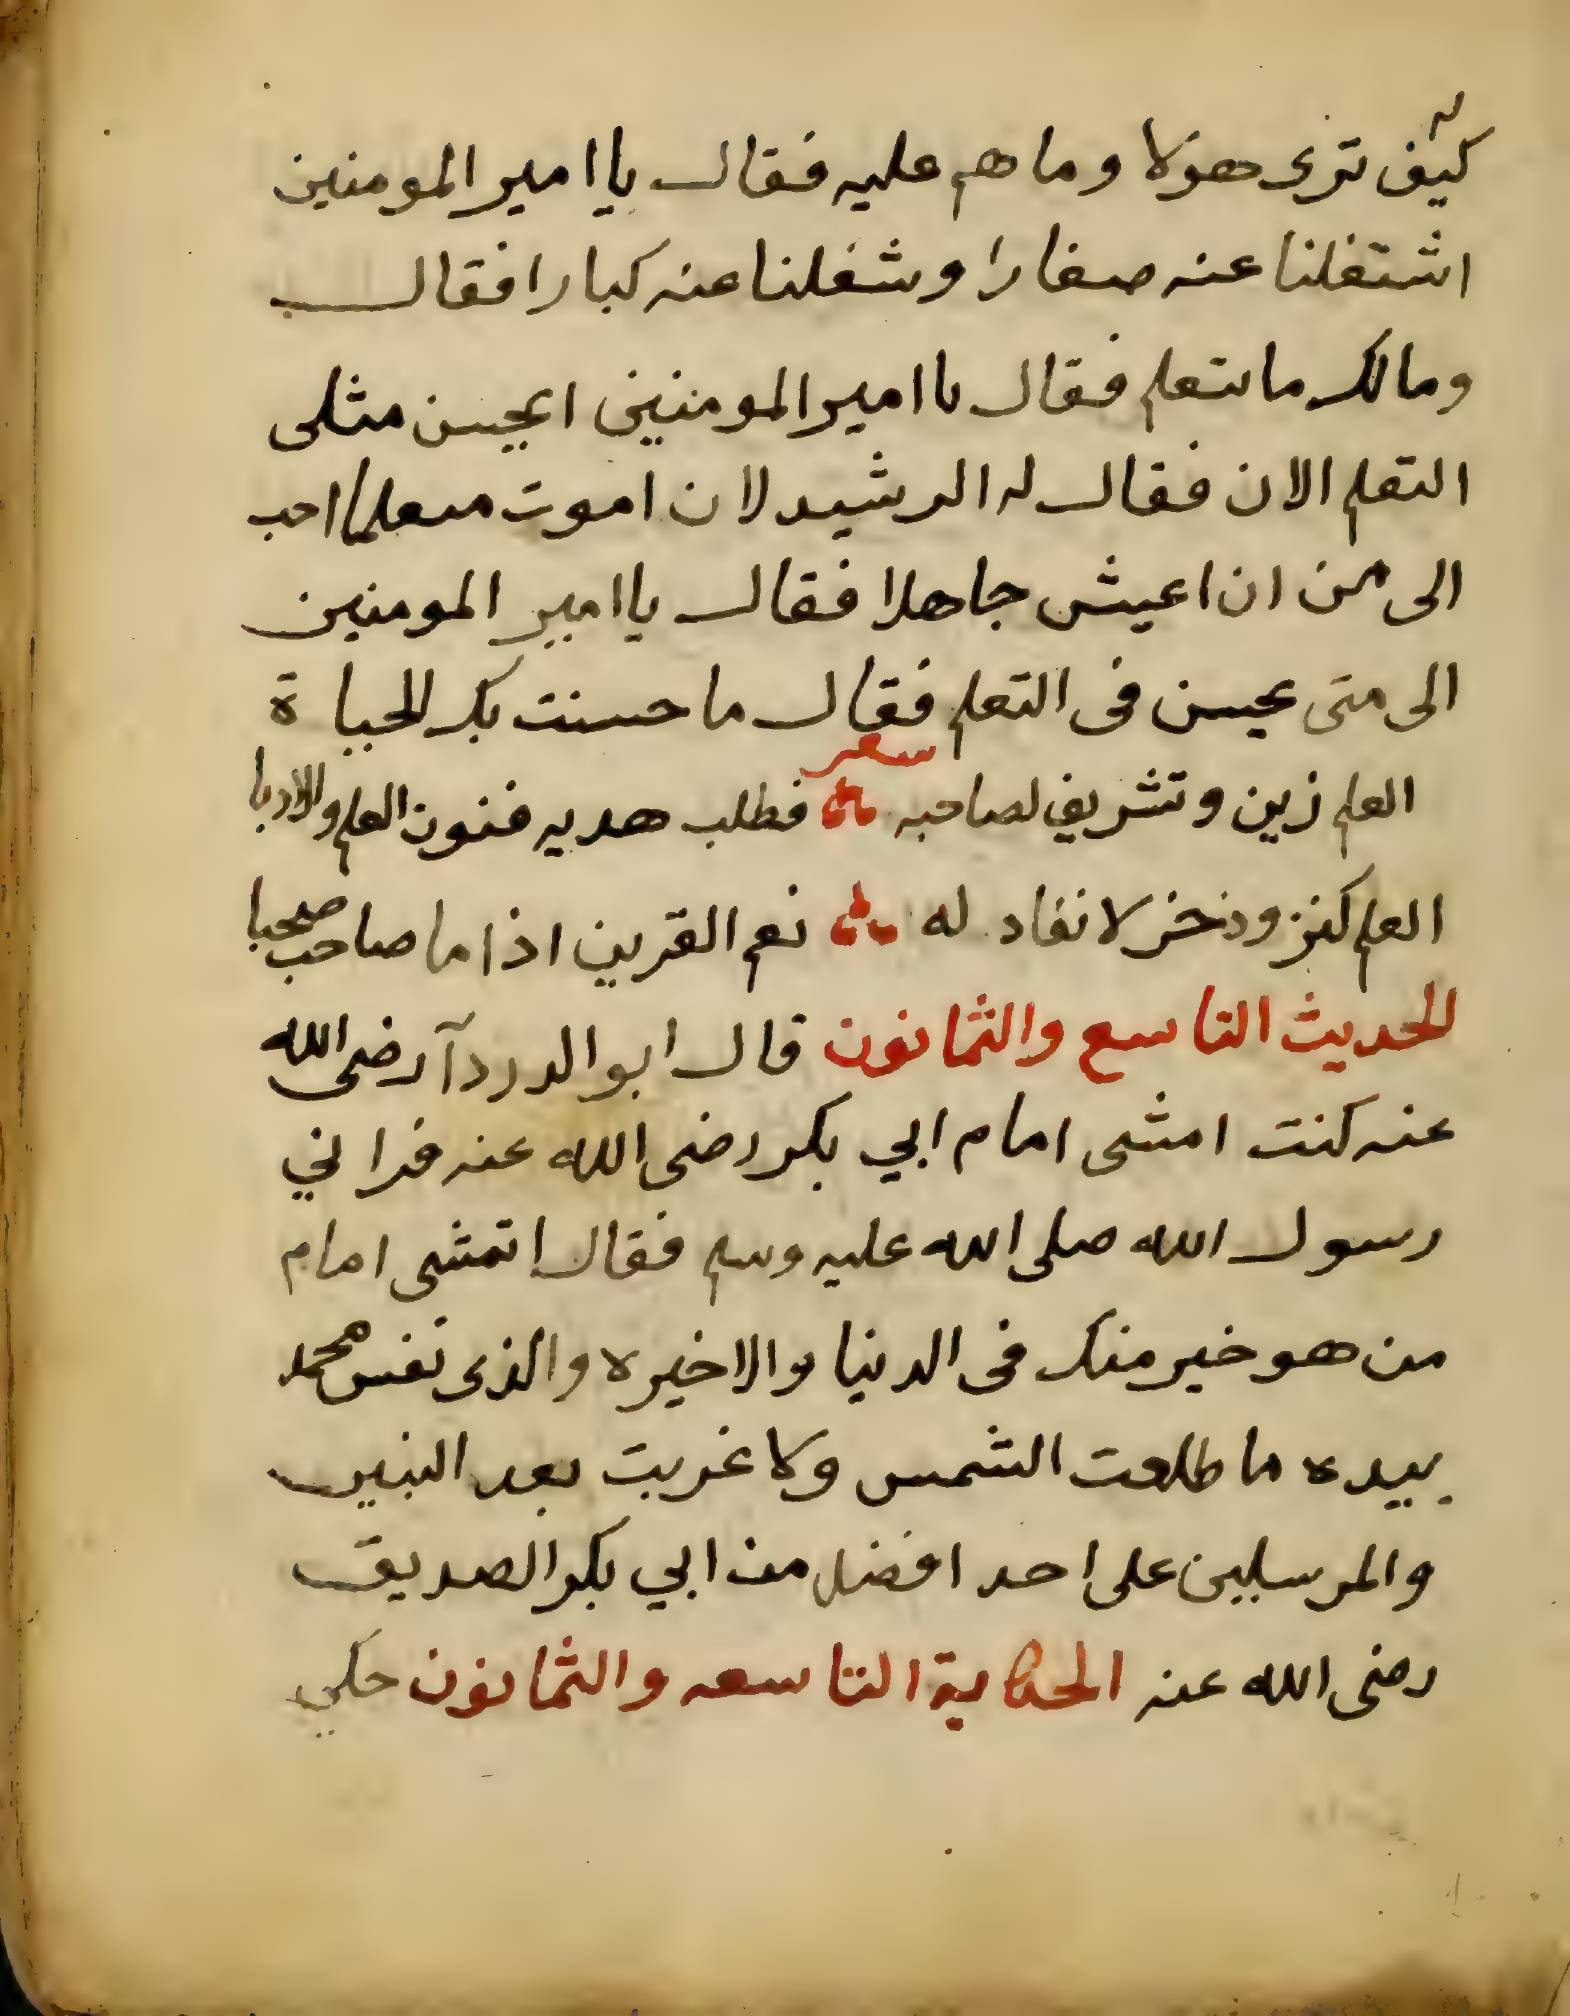 له
كيف ترى هولا وما هم عليه فقال يا امير المومنين
اشتغلنا عنه صغارا وشغلنا عنه كبارا فقال
ومالك ما تتعلم فقال يا امير المومنين ايحسن مثلى
التعلم الان فقال له الرشيد لان اموت متعلما احب
الى من ان اعيش جاهلا فقال يا امير المومنين
الى متى يحسن فى التعلم فقال ما حسنت بك الحياة
شعر
العلم زين وتشريف لصاحبه فطلب هديه فنون العلم والادبا
العلم كنز وذخر لا نفاد له نعم القرين اذا ما صاحب صحبا
الحديث التاسع والثمانون قال ابو الدردآ رضى الله
عنه كنت امشى امام ابي بكر رضى الله عنه فراني
رسول الله صلى الله عليه وسلم فقال اتمشى امام
من هو خير منك فى الدنيا والاخيره والذى نفس محمد
بيده ما طلعت الشمس ولا غربت بعد النبين
والمرسلين على احد افضل من ابي بكر الصديق
رضى الله عنه الحكاية التاسعه والثمانون حكي